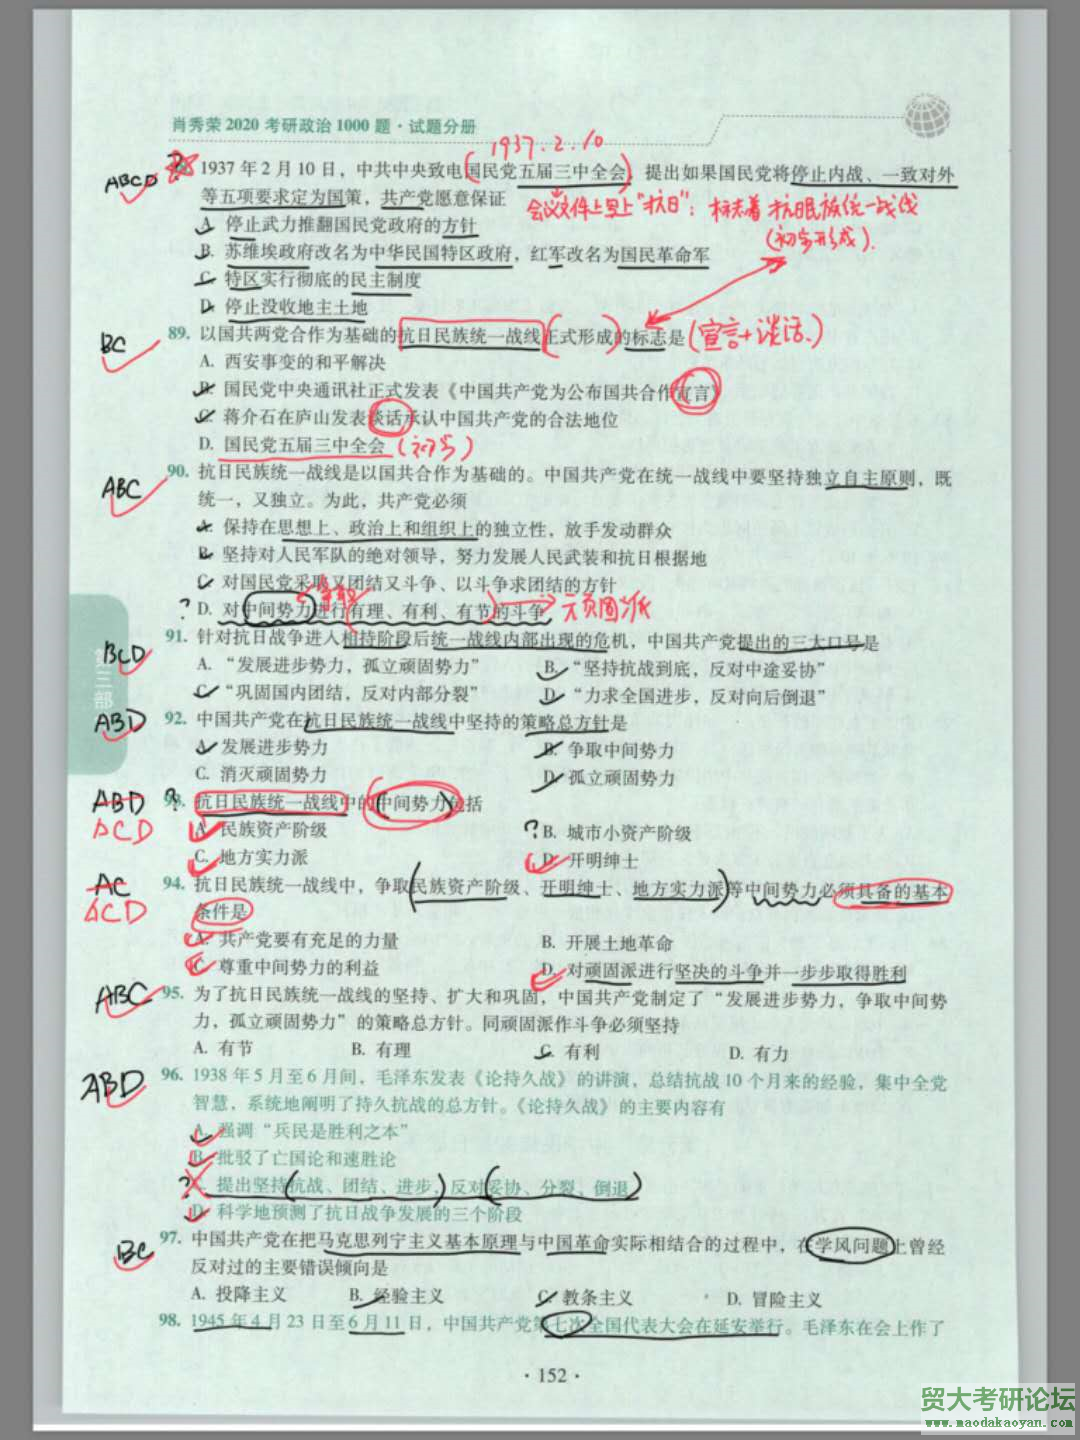 肖秀荣2020考研政治1000题·试题分册
1937.2.10
ABCD
1937年2月10日，中共中央致电国民党五届三中全会，提出如果国民党将停止内战、一致对外
等五项要求定为国策，共产党愿意保证
会议文件上写上“抗日”；标志着抗日民族统一战线
(初步形成).
A. 停止武力推翻国民党政府的方针
B. 苏维埃政府改名为中华民国特区政府，红军改名为国民革命军
C. 特区实行彻底的民主制度
D. 停止没收地主土地
BC
89. 以国共两党合作为基础的抗日民族统一战线正式形成的标志是
(宣言+谈话.)
A. 西安事变的和平解决
B. 国民党中央通讯社正式发表《中国共产党为公布国共合作宣言》
C. 蒋介石在庐山发表谈话承认中国共产党的合法地位
D. 国民党五届三中全会 (初步)
ABC
90. 抗日民族统一战线是以国共合作为基础的。中国共产党在统一战线中要坚持独立自主原则，既
统一，又独立。为此，共产党必须
A. 保持在思想上、政治上和组织上的独立性，放手发动群众
B. 坚持对人民军队的绝对领导，努力发展人民武装和抗日根据地
C. 对国民党采取又团结又斗争、以斗争求团结的方针
争取
? D. 对中间势力进行有理、有利、有节的斗争
顽固派
BCD
91. 针对抗日战争进入相持阶段后统一战线内部出现的危机，中国共产党提出的三大口号是
A. “发展进步势力，孤立顽固势力” B. “坚持抗战到底，反对中途妥协”
C. “巩固国内团结，反对内部分裂” D. “力求全国进步，反对向后倒退”
第三部
ABD
92. 中国共产党在抗日民族统一战线中坚持的策略总方针是
A. 发展进步势力 B. 争取中间势力
C. 消灭顽固势力 D. 孤立顽固势力
ABD ?
ACD
93. 抗日民族统一战线中的中间势力包括
A. 民族资产阶级 ?B. 城市小资产阶级
C. 地方实力派 D. 开明绅士
AC
ACD
94. 抗日民族统一战线中，争取民族资产阶级、开明绅士、地方实力派等中间势力必须具备的基本
条件是
A. 共产党要有充足的力量 B. 开展土地革命
C. 尊重中间势力的利益 D. 对顽固派进行坚决的斗争并一步步取得胜利
ABC
95. 为了抗日民族统一战线的坚持、扩大和巩固，中国共产党制定了“发展进步势力，争取中间势
力，孤立顽固势力”的策略总方针。同顽固派作斗争必须坚持
A. 有节 B. 有理 C. 有利 D. 有力
ABD
96. 1938年5月至6月间，毛泽东发表《论持久战》的讲演，总结抗战10个月来的经验，集中全党
智慧，系统地阐明了持久抗战的总方针。《论持久战》的主要内容有
A. 强调“兵民是胜利之本”
B. 批驳了亡国论和速胜论
? C. 提出坚持抗战、团结、进步，反对妥协、分裂、倒退
D. 科学地预测了抗日战争发展的三个阶段
BC
97. 中国共产党在把马克思列宁主义基本原理与中国革命实际相结合的过程中，在学风问题上曾经
反对过的主要错误倾向是
A. 投降主义 B. 经验主义 C. 教条主义 D. 冒险主义
98. 1945年4月23日至6月11日，中国共产党第七次全国代表大会在延安举行。毛泽东在会上作了
·152·
贸大考研论坛
www.maodakaoyan.com